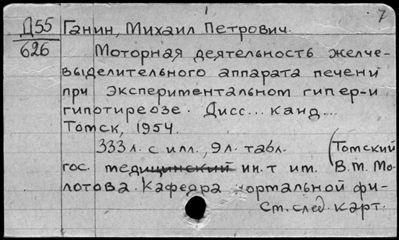 7
Д55 Ганин, Михаил Петрович.
626 Моторная деятельность желче-
выделительного аппарата печени
при экспериментальном гипер-и
гипотиреозе. Дисс... канд...
Томск, 1954.
333 л. с илл., 9 л. табл. (Томский
гос. медицинский ин-т им. В.М. Мо-
лотова. Кафедра нормальной фи-
См. след. карт.